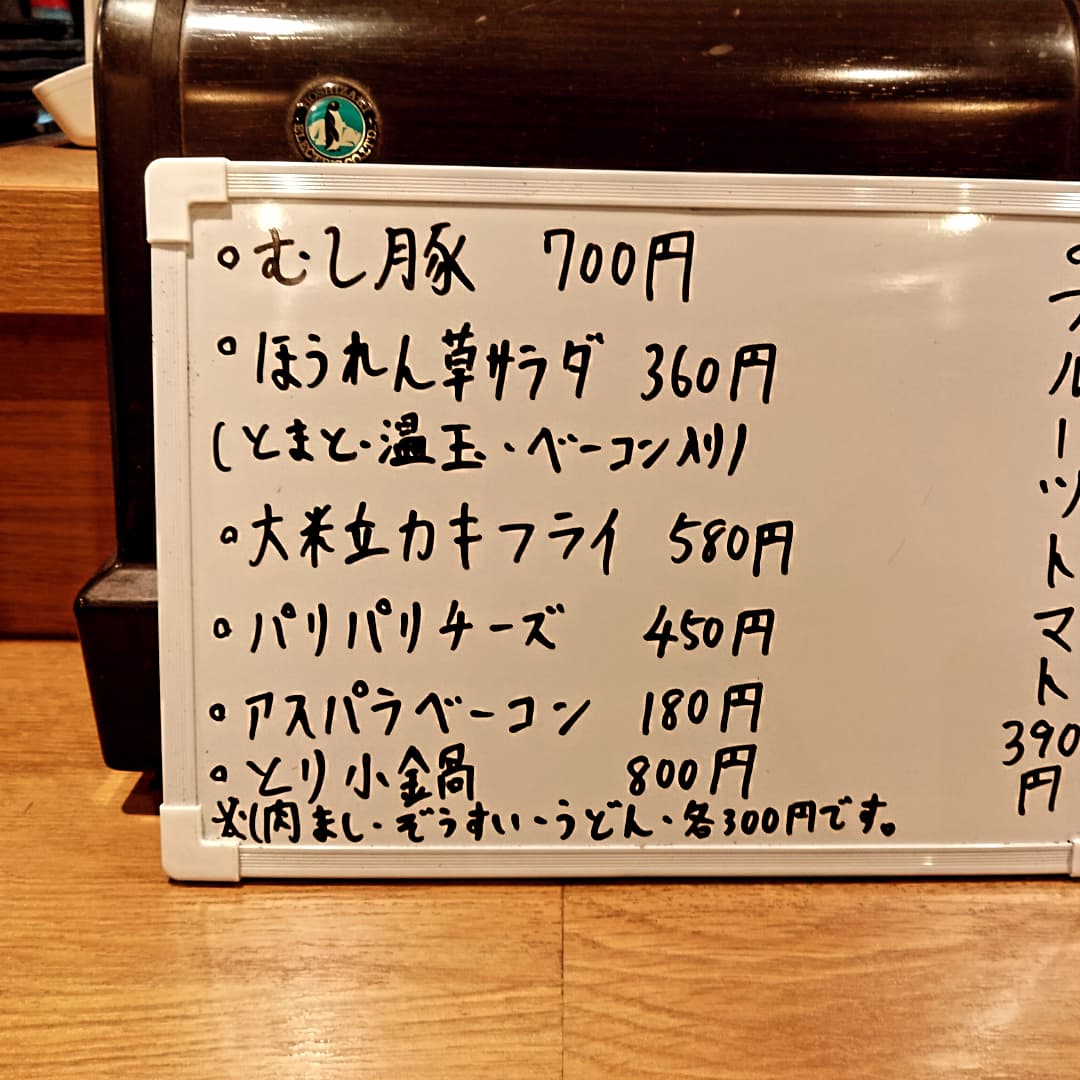 HOSHIZAKI ELECTRIC CO.,LTD.
。むし豚 700円
。ほうれん草サラダ 360円
(とまと・温玉・ベーコン入り)
。大粒カキフライ 580円
。パリパリチーズ 450円
。アスパラベーコン 180円
。とり小鍋 800円
※(肉まし・ぞうすい・うどん・各300円です。
。フルーツトマト
390
円